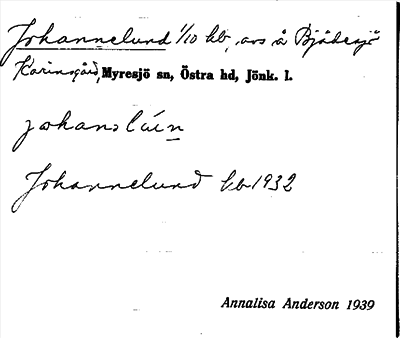 Johannelund 1/10 hb, avs å Bjädesjö
Karinsgård, Myresjö sn, Östra hd, Jönk. l.
johanslún
Johannelund hb 1932
Annalisa Anderson 1939